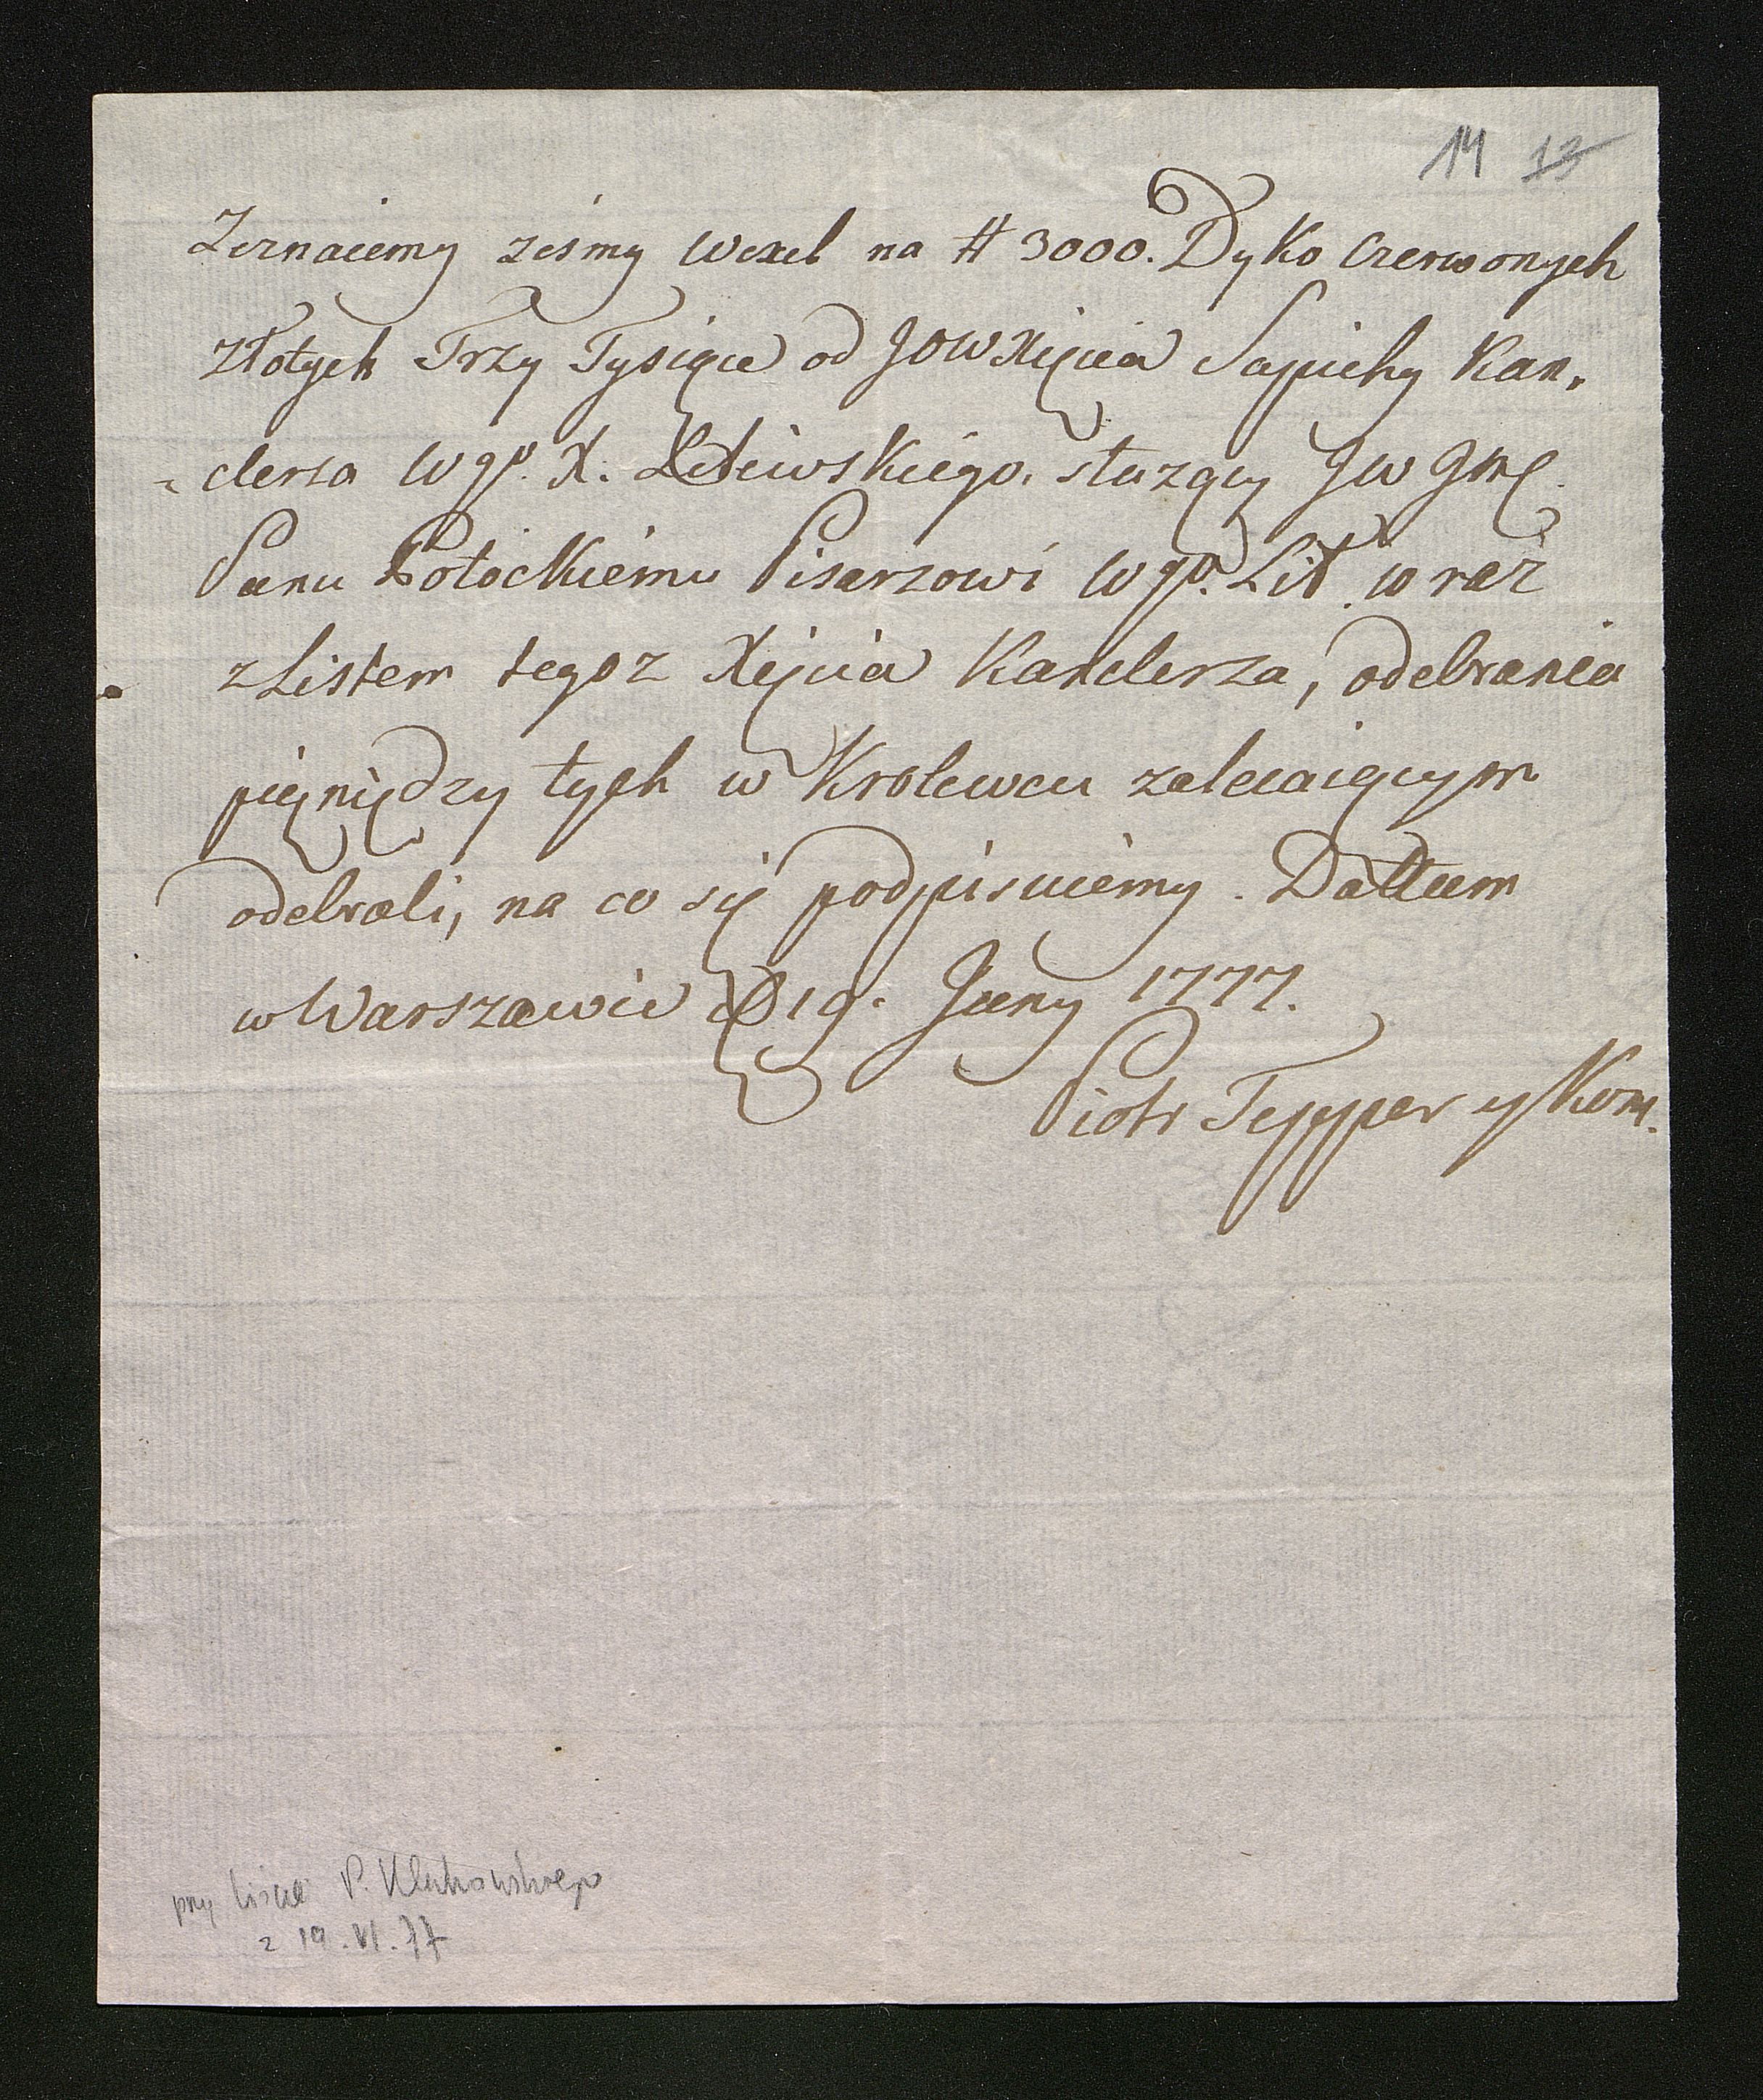 14 13
Zeznaiemy zesmy wexel na # 3000. Dyko Czerwonych
Złotych Trzy Tysiące od JOW Xięcia Sapiehy Kan„
„clerza W gº. X. Litewskiego, służący JW Jmć
Panu Potockiemu Pisarzowi W gº. Lit. w raz
z Listem tegoz Xięcia Kanclerza, odebrania
pięniędzy tych w Krolewcu zalecaiącym
odebrali, na co się podpisuiemy. Dattum
w Warszawie D 19. Juny 1777.
Piotr Tepper y Kom.
przy liście P. Klukowskiego
z 19.VI.77